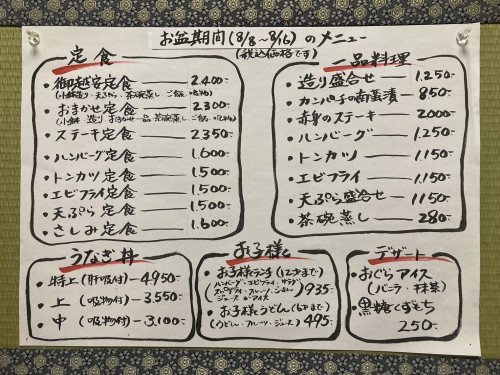 お盆期間(8/8～8/16)のメニュー
(税込価格です)
定食
・御越安定食 2.400-
・おまかせ定食 2300-
・ステーキ定食 2.350
・ハンバーグ定食 1.600
・トンカツ定食 1.500
・エビフライ定食 1.500
・天ぷら定食 1.500
・さしみ定食 1.600
一品料理
・造り盛合せ 1.250-
・カンパチの南蛮漬 850-
・赤身のステーキ 2000-
・ハンバーグ 1.250
・トンカツ 1.150
・エビフライ 1.150
・天ぷら盛合せ 1150
・茶碗蒸し 280-
うなぎ丼
・特上(肝吸付) 4950-
・上(吸物付) 3.550-
・中(吸物付) 3.100-
お子様
・お子様ランチ(12才まで)
ハンバーグ・エビフライ・サラダ
935-
・お子様うどん(6才まで)
(うどん・フルーツ・ジュース) 495-
デザート
おぐらアイス
(バニラ・抹茶)
黒糖くずもち
250-